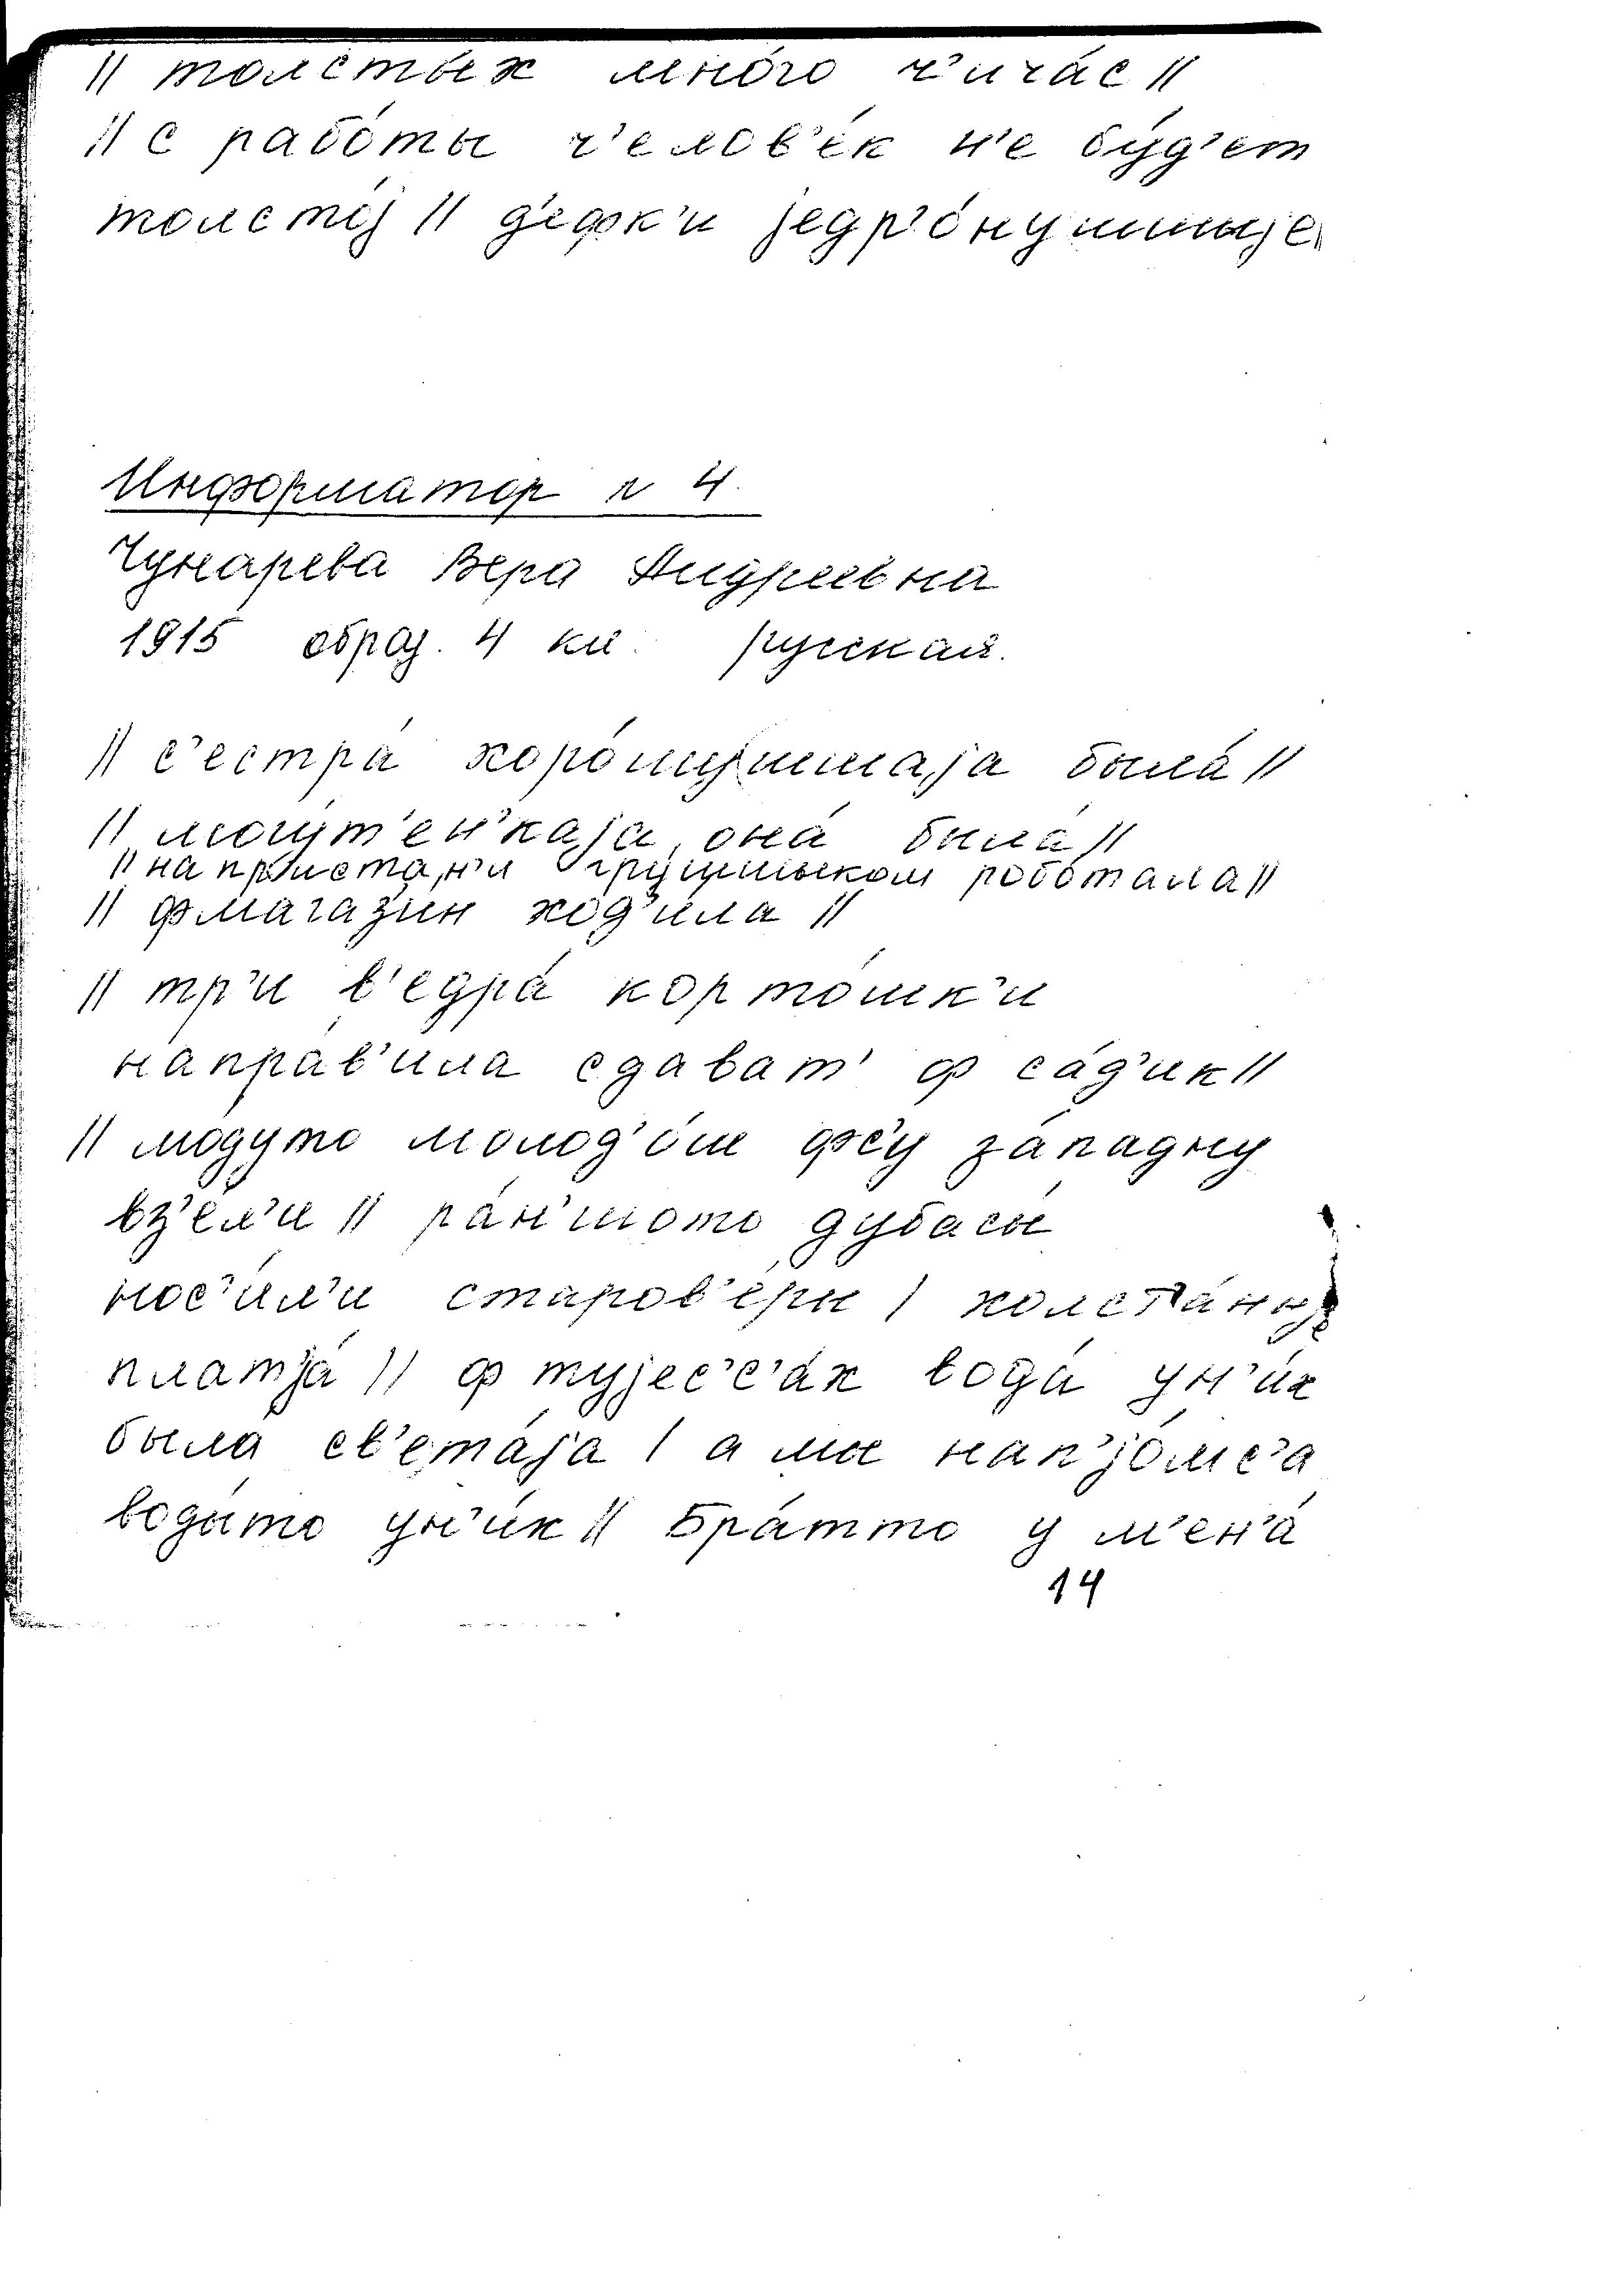 || толстых мно́го ч'ича́с ||
|| с рабо́ты ч'елов'е́к н'е бу́д'ет
толсто́j || д'е́фк'и jедр'о́нушшыjе
Информатор № 4.
Чунарева Вера Андреевна
1915 образ. 4 кл. русская.
|| с'естра́ хоро́шушшаjа была́ ||
|| могу́т'ен'каjа она́ была́ ||
|| на пр'и́стан'и гру́щшыком робо́тала ||
|| фмагаз'и́н ход'и́ла ||
|| тр'и в'едра́ корто́шк'и
напра́в'ила сдават' ф са́д'ик ||
|| мо́дуто молод'о́ш фс'у за́падну
вз'е́л'и || ра́н'шото дубасы́
нос'и́л'и старов'е́ры | холст'а́ныjе
плат'jа́ || ф туjес'с'а́х вода́ ун'и́х
была́ св'ета́jа | а мы нап'jо́мс'а
воды́то ун'и́х || Бра́тто у м'ен'а́
14